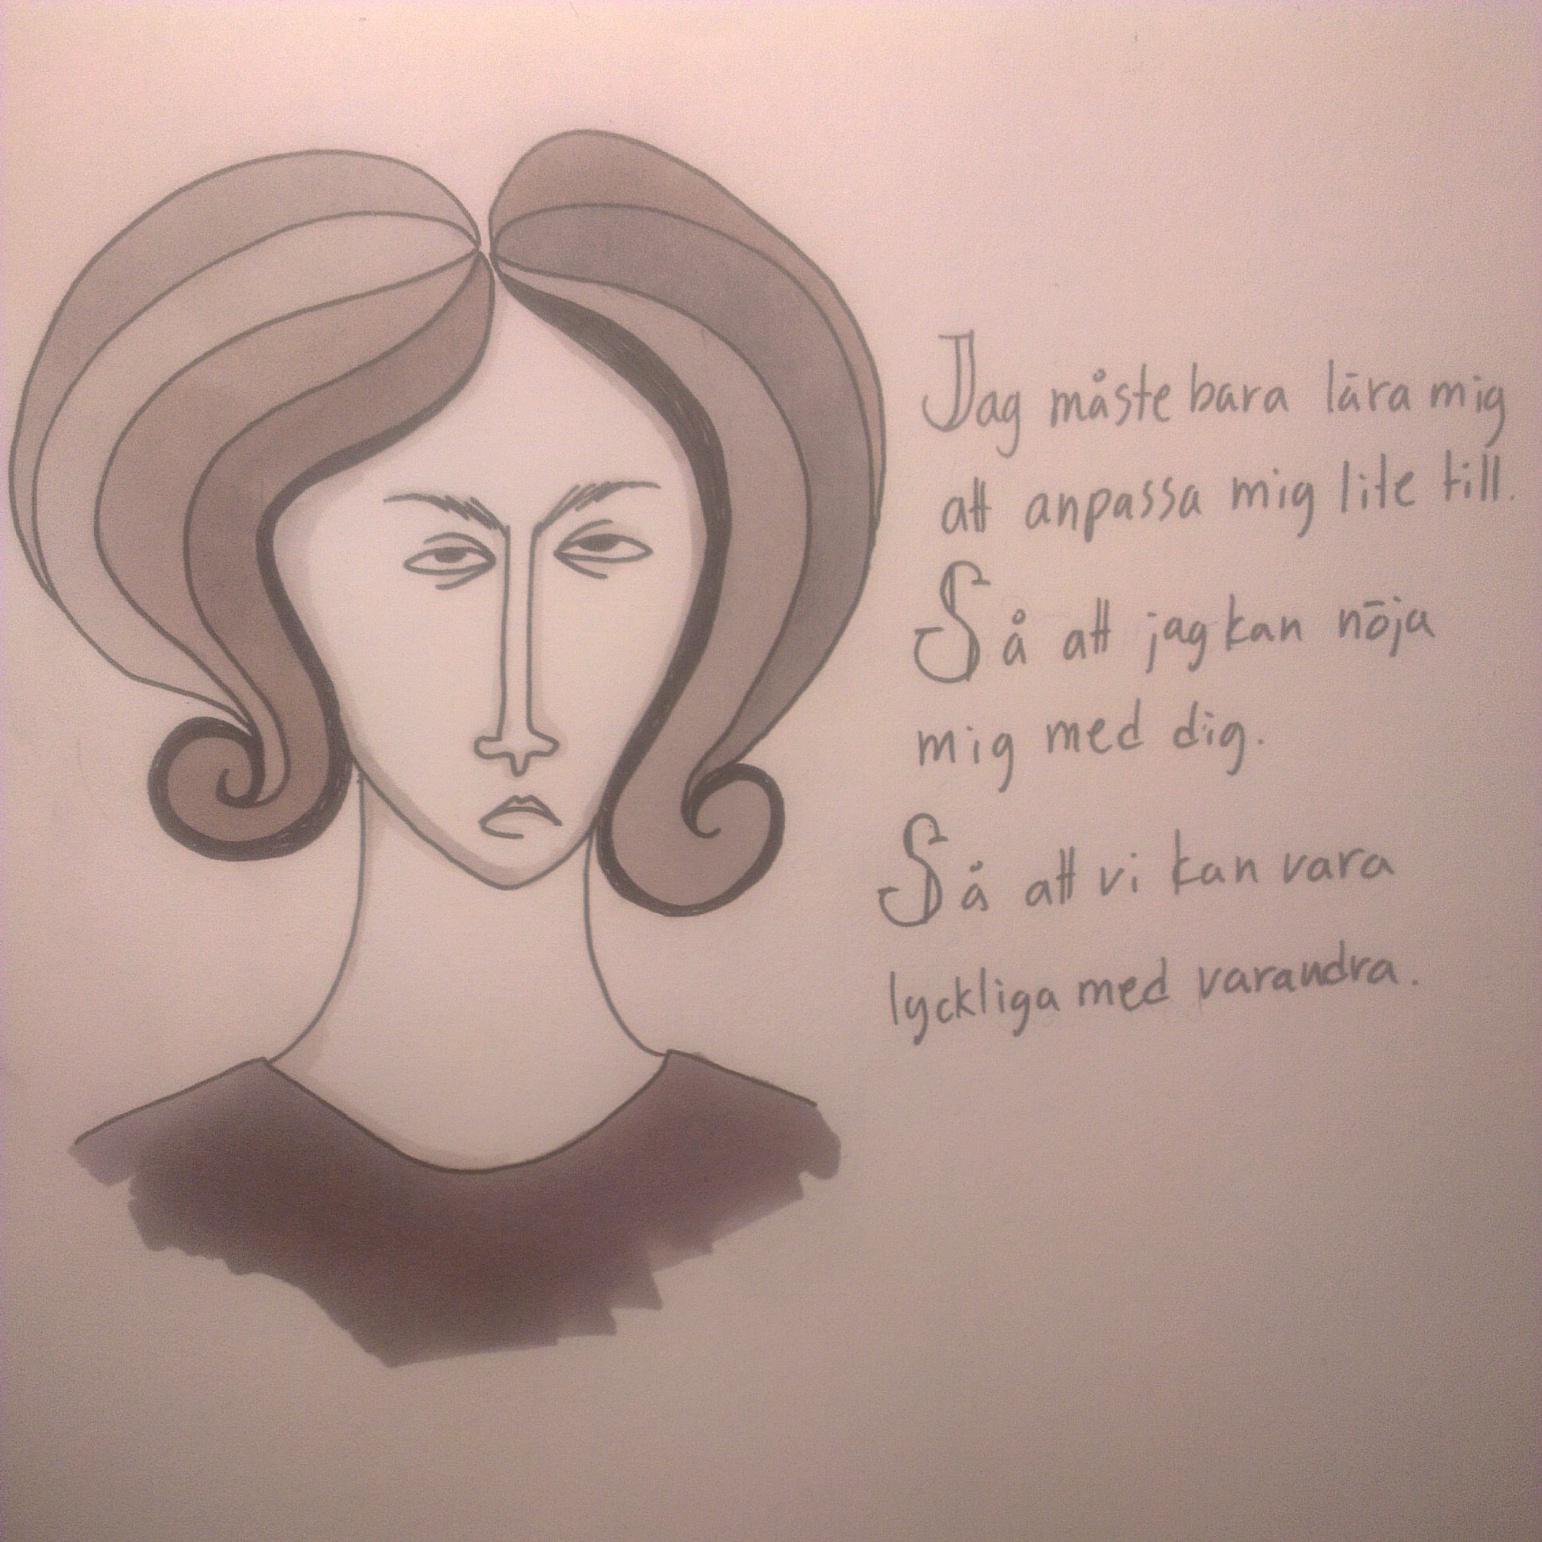 Jag måste bara lära mig
att anpassa mig lite till.
Så att jag kan nöja
mig med dig.
Så att vi kan vara
lyckliga med varandra.